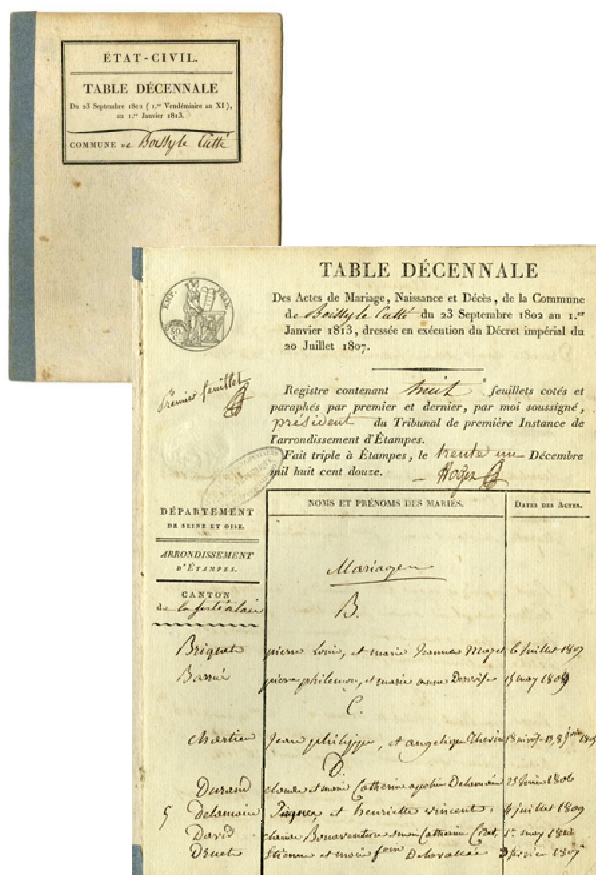 ÉTAT-CIVIL.
TABLE DÉCENNALE
Du 23 Septembre 1802 (1.er Vendémiaire an XI),
au 1.er Janvier 1813.
COMMUNE de Boissy le Cutté
TABLE DÉCENNALE
Des Actes de Mariage, Naissance et Décès, de la Commune
de Boissy le Cutté du 23 Septembre 1802 au 1.er
Janvier 1813, dressée en exécution du Décret impérial du
20 Juillet 1807.
premier feuillet
Registre contenant huit feuillets cotés et
paraphés par premier et dernier, par moi soussigné,
président du Tribunal de première Instance de
l'arrondissement d'Étampes.
Fait triple à Étampes, le trente un Décembre
mil huit cent douze.
DÉPARTEMENT
DE SEINE ET OISE.
ARRONDISSEMENT
D'ÉTAMPES.
CANTON
de la ferté alais
NOMS ET PRÉNOMS DES MARIÉS.
DATES DES ACTES.
Mariages
B.
Briquet pierre louis, et marie Jeanne 6 Juillet 1807
Barré pierre philemon, et marie anne may
C.
Jean philippe, et angelique
D.
Durand et marie Catherine Delamoire 1806
5 delamoire et henriette vincent. juillet 1809
David Bonaventure Catherine may
Druet Etienne et marie